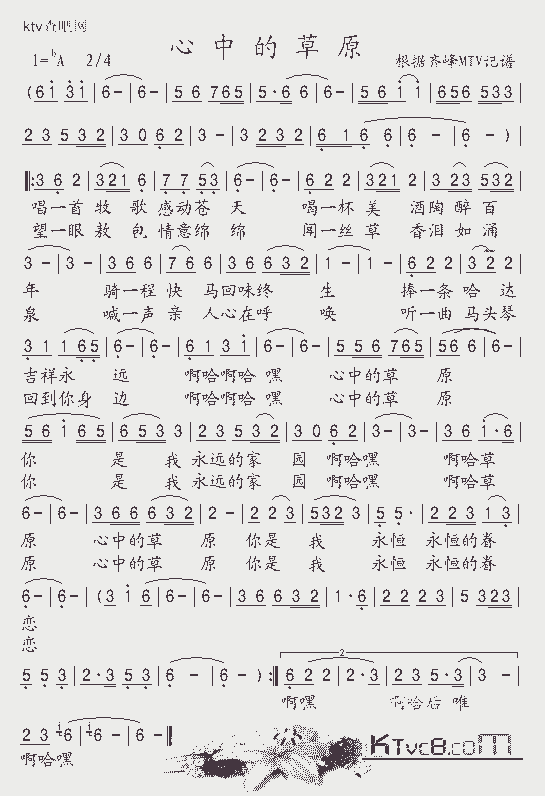 ktv吧网
心中的草原
1=bA 2/4 根据齐峰MTV记谱
(6i 3i|6-|6-|56 765|5·6 6|6-|56 i i|656 533|
23 532|30 62|3-|3 232|6 16|6 6-|6-)|
‖:36 2|321 6|7 7 53|6-|6-|62 2|321 2|3 23|532|
唱一首 牧 歌 感动苍 天 喝一杯 美 酒陶 醉 百
望一眼 敖 包 情意绵 绵 闻一丝 草 香泪 如 涌
3-|3-|3 66|76 6|36 632|1-|1-|62 2|3 22|
年 骑一程 快 马回味终 生 捧一条 哈 达
泉 喊一声 亲 人心在呼 唤 听一曲 马头琴
31|1 65|6-|6-|61 3i|6-|6-|55 6 765|56 6|6-|
吉祥永 远 啊哈啊哈 嘿 心中的草 原
回到你身 边 啊哈啊哈 嘿 心中的草 原
56 i 65|6 53 3|23 532|30 62|3-|3-|36 i·6|
你 是 我 永远的家 园 啊哈嘿 啊哈草
你 是 我 永远的家 园 啊哈嘿 啊哈草
6-|6-|3 66 632|2-|2 23|532 3|5 5·|2 23 13|
原 心中的草 原 你是 我 永恒 永恒的眷
原 心中的草 原 你是 我 永恒 永恒的眷
6-|6-|(3 i 6|6-|6-|36 632|1·6|22 23|5 323|
恋
恋
5 5 3|2·3 53|6-|6-):‖6 22|2·3|23 5·3|3-|
2
啊嘿 啊哈后 唯
23 i6|i6-|6-‖
啊哈嘿
KTVC8.COM